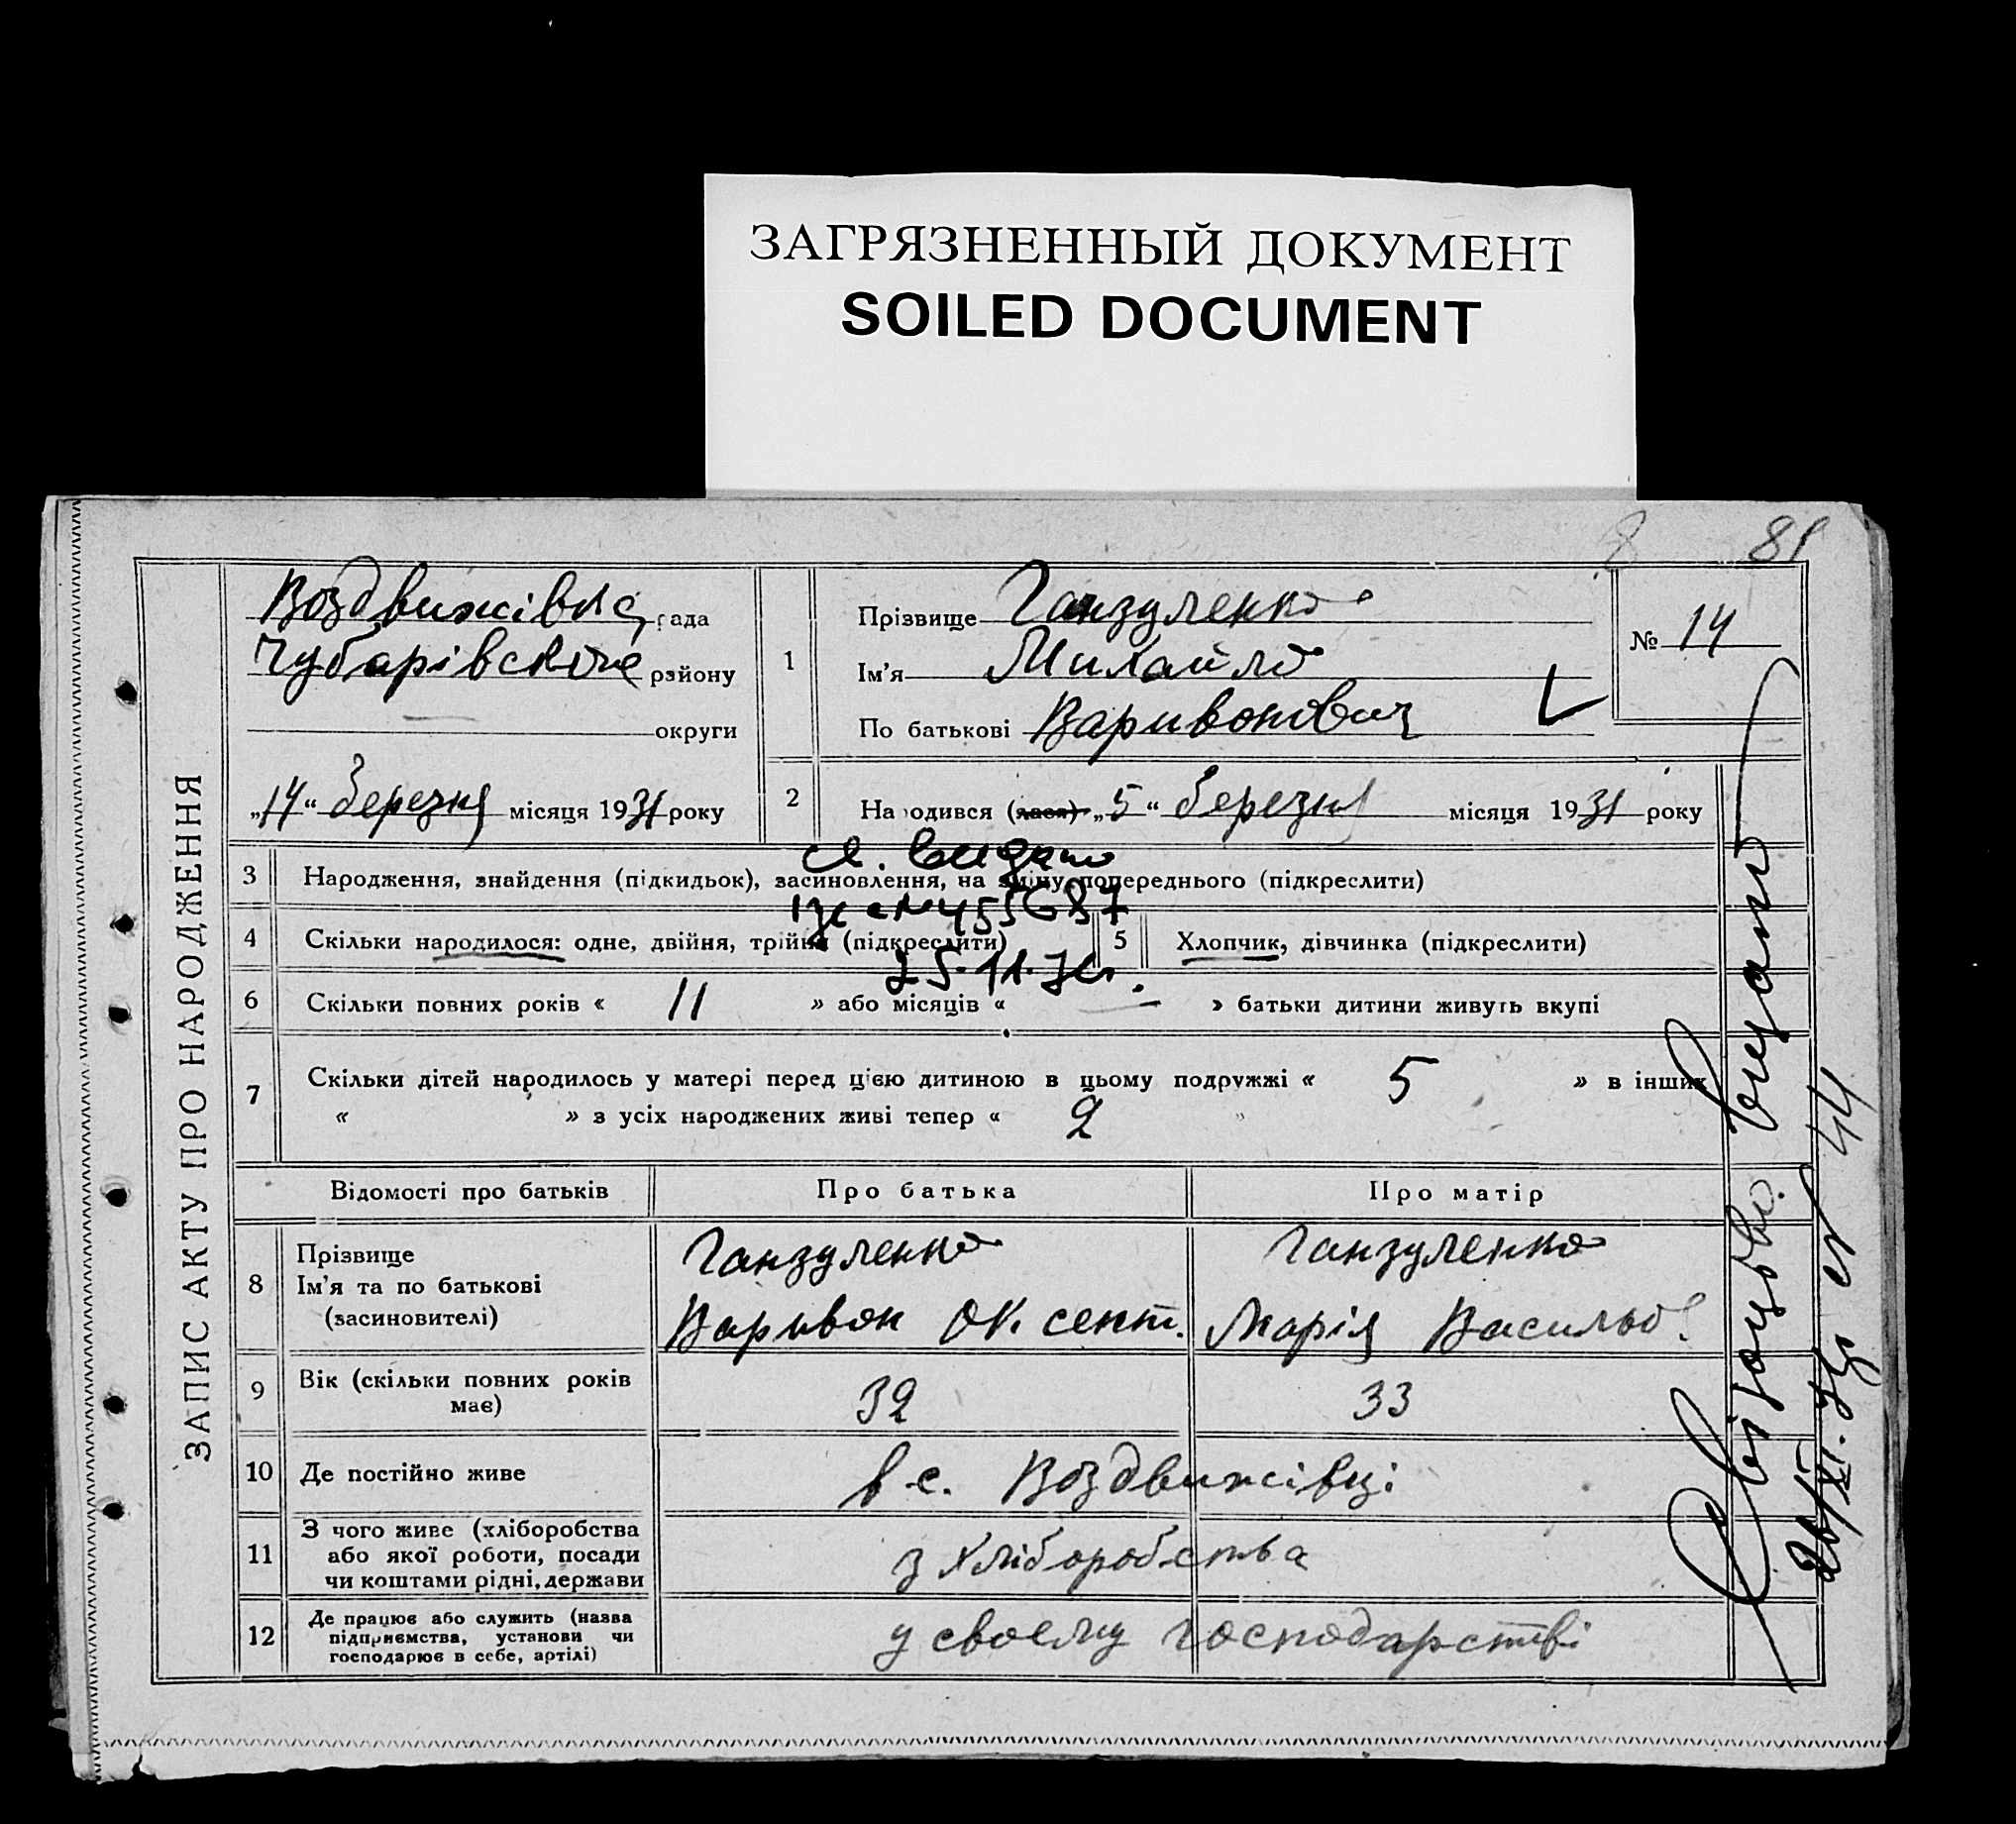 ЗАГРЯЗНЕННЫЙ ДОКУМЕНТ
SOILED DOCUMENT
8 81
ЗАПИС АКТУ ПРО НАРОДЖЕННЯ
Воздвижівка рада
Чубарівського району
округи
„14“ березня місяця 1931 року
1
Прізвище Ганзуленко
Ім'я Михайло
По батькові Варивонович
№ 14
2
Народився (лася) „5“ березня місяця 1931 року
3 Народження, знайдення (підкидьок), засиновлення, на зміну попереднього (підкреслити)
4 Скільки народилося: одне, двійня, трійня (підкреслити)
5 Хлопчик, дівчинка (підкреслити)
25.11.
6 Скільки повних років « 11 » або місяців « — » батьки дитини живуть вкупі
7 Скільки дітей народилось у матері перед цією дитиною в цьому подружжі « 5 » в інших
« » з усіх народжених живі тепер « 2 »
Відомості про батьків Про батька Про матір
8 Прізвище
Ім'я та по батькові
(засиновителі)
Ганзуленко
Варивон Оксент.
Ганзуленко
Марія Василь
9 Вік (скільки повних років
має)
32 33
10 Де постійно живе в с. Воздвижівці
11 З чого живе (хліборобства
або якої роботи, посади
чи коштами рідні, держави
з хліборобства
12 Де працює або служить (назва
підприємства, установи чи
господарює в себе, артілі)
у своєму господарстві
видано